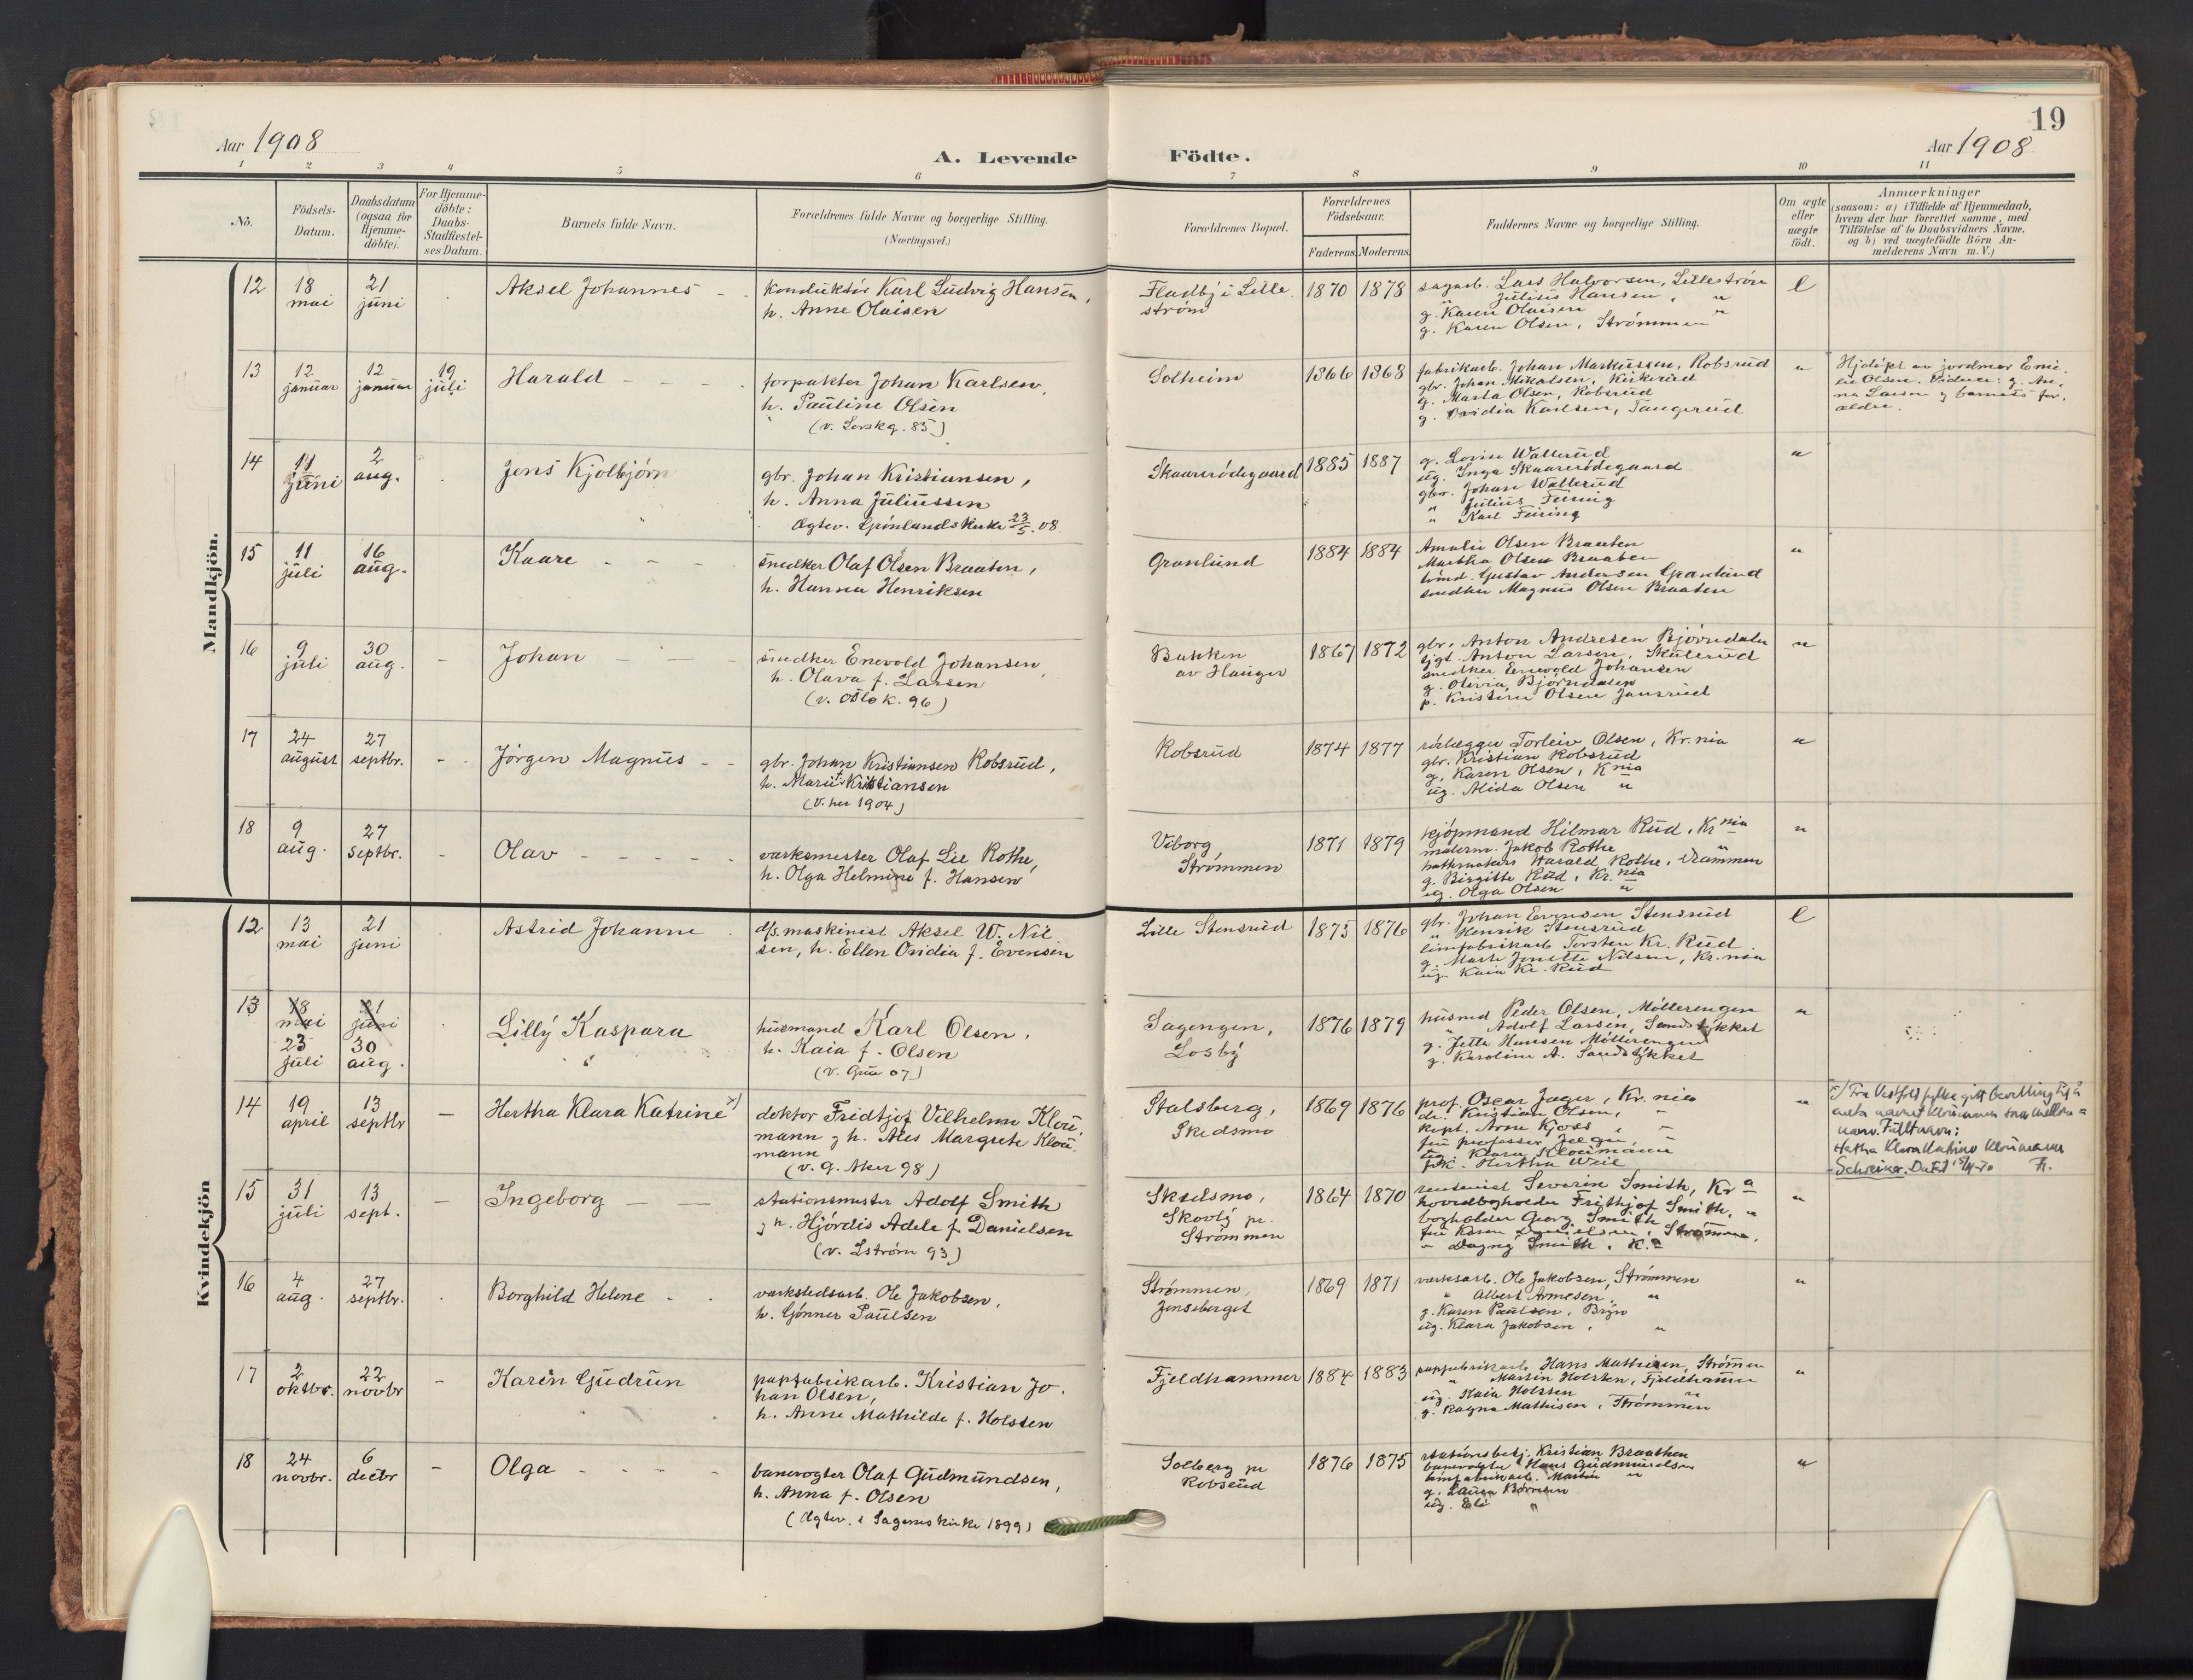 19
Aar 1908
A. Levende Födte.
Aar 1908
1 2 3 4 5 6 7 8 9 10 11
No.
Födsels-Datum.
Daabsdatum (ogsaa for Hjemme-döbte).
For Hjemme-döbte: Daabs-Stadfæstel-ses Datum.
Barnets fulde Navn.
Forældrenes fulde Navne og borgerlige Stilling.
(Næringsvei.)
Forældrenes Bopæl.
Forældrenes Födselsaar.
Faderens. Moderens.
Faddernes Navne og borgerlige Stilling.
Om ægte eller uægte födt.
Anmærkninger
(saasom: a) i Tilfælde af Hjemmedaab,
hvem der har forrettet samme, med
Tilföielse af to Daabsvidners Navne,
og b) ved uægtefödte Börn An-
melderens Navn m. V.)
Mandkjön.
12 18 mai 21 juni Aksel Johannes
konduktör Karl Ludvig Hansen,
h. Anne Olaisen
Fladby i Lille
ström
1870 1878
sagarb. Lars Halvorsen, Lilleström
" Julius Hansen, "
g. Karen Olaisen "
g. Karen Olsen, Strømmen
l
13 12 januar 12 januar 19 juli Harald
forpakter Johan Karlsen,
h. Pauline Olsen
(v. Lørskg. 85)
Solheim
1866 1868
fabrikarb. Johan Markussen, Robsrud
gbr. Johan Mikalsen, Kirkerud
g. Marta Olsen, Robsrud
g. Ovidia Karlsen, Tangerud
"
Hjdöpt av jordmor Emi-
lie Olsen. Vidner: g. An-
na Larsen og barnets for-
ældre.
14 11 juni 2 aug. Jens Kjolbjörn
gbr. Johan Kristiansen,
h. Anna Juliussen
Ægtev. Grönlands Kirke 23/5. 08
Skaarerödegaard
1885 1887
g. Lovise Wallerud
ug. Inga Skaarerödegaard
gbr. Johan Wallerud
" Julius Feiring
" Karl Feiring
"
15 11 juli 16 aug. Kaare
snedker Olaf Olsen Braaten,
h. Hanna Henriksen
Granlund
1884 1884
Amalie Olsen Braaten
Martha Olsen Braaten
Gustav Andersen Granlund
snedker Magnus Olsen Braaten
"
16 9 juli 30 aug. Johan
snedker Enevold Johansen,
h. Olava f. Larsen
(v. Oslo k. 96)
Bakken
av Hauger
1867 1872
gbr. Anton Andresen Bjørndalen
Anton Larsen, Skulerud
snedker Enevold Johansen
g. Olivia Bjørndalen
p. Kristine Olsen Jansrud
"
17 24 august 27 septbr. Jörgen Magnus
gbr. Johan Kristiansen Robsrud,
h. Marie Kristiansen
(v. her 1904)
Robsrud
1874 1877
rörlægger Torleiv Olsen, Kr.nia
gbr. Kristian Robsrud
g. Karen Olsen, Knia
ug. Alida Olsen "
"
18 9 aug. 27 septbr. Olav
verksmester Olaf Lie Rothe,
h. Olga Helmine f. Hansen
Viborg,
Strømmen
1871 1879
kjöpmand Hilmar Rud, Krnia
malerm. Jakob Rothe "
Harald Rothe, Drammen
g. Birgitte Rud, Kr.nia
ug. Olga Olsen "
"
Kvindekjön
12 13 mai 21 juni Astrid Johanne
d/s. maskinist Aksel W. Nil
sen, h. Ellen Ovidia f. Evensen
Lille Stensrud
1875 1876
gbr. Johan Evensen Stensrud
" Henrik Stensrud
limfabrikarb Torsten Kr. Rud
g. Marte Jonette Nilsen, Kr.nia
ug. Kaia Kr. Rud
l
13 18 mai 21 juni
23 juli 30 aug. Lilly Kaspara
husmand Karl Olsen,
h. Kaia f. Olsen
(v. Grue 07)
Sagengen,
Losby
1876 1879
husmd Peder Olsen, Möllerengen
" Adolf Larsen, Sandstykket
g. Jette Hansen Möllerengen
g. Karoline A. Sandstykket
"
14 19 april 13 septbr Hertha Klara Katrine x)
doktor Fridtjof Vilhelm Klou
mann og h. Ales Margrete Klou
mann
(v. g. Aker 98)
Stalsberg,
Skedsmo
1869 1876
prof. Oscar Jæger, Kr.nia
dr. Kristian Olsen, "
kapt. Arne Kjoss, "
fru professor Jæger, "
ug. Klara Kloumann "
frk. Hertha Weie
"
x) Fra Vestfold fylke gitt bevilling til å
anta navnet Kloumann som mellom-
navn. Fullt navn:
Hertha Klara Katrine Kloumann
Schreiner.
15 31 juli 13 sept. Ingeborg
stationsmester Adolf Smith
og h. Hjördis Adele f. Danielsen
(v. Lström 93)
Skedsmo,
Skovly pr.
Strömmen
1864 1870
Severin Smith, Kra
hovedbogholder Frithjof Smith, "
bogholder Georg Smith
fru Karen Danielsen, Strömmen,
" Dagny Smith, K.a
"
16 4 aug. 27 septbr. Borghild Helene
verkstedsarb. Ole Jakobsen,
h. Gjønner Paulsen
Strømmen,
Jensberget
1869 1871
verksarb. Ole Jakobsen, Strømmen
" Albert Arnesen, "
g. Karen Paulsen, Bryn
ug. Klara Jakobsen, "
"
17 2 oktbr. 22 novbr Karen Gudrun
papfabrikarb. Kristian Jo-
han Olsen,
h. Anne Mathilde f. Holsten
Fjeldhammer
1884 1883
papfabrikarb Hans Mathisen, Strømmen
" Martin Holsten, Fjeldhammer
ug. Kaia Holsten "
g. Ragna Mathisen, Strömmen
"
18 24 novbr. 6 decbr Olga
banevogter Olaf Gudmundsen,
h. Anna f. Olsen
(Ægtev. i Sagenes kirke 1899)
Solberg pr
Robsrud
1876 1875
stationsbetj. Kristian Braathen
banevogter Hans Gudmundsen
limfabrikarb. Martin "
g. Laura
ug. "
"